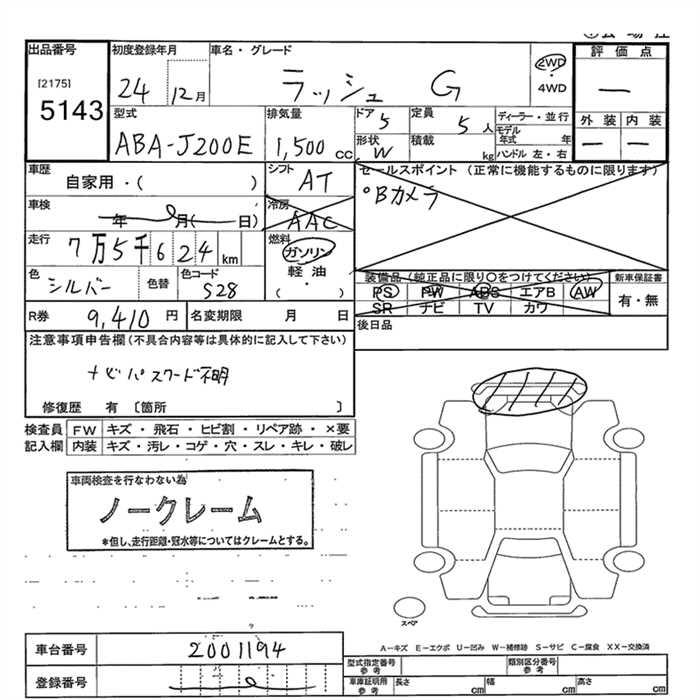 出品番号
[2175]
5143
初度登録年月
24 12月
車名・グレード
ラッシュ G
2WD
・
4WD
評価点
—
外装 内装
— —
型式
ABA-J200E
排気量
1,500 cc
ドア 5
定員 5人
形状 W
積載 kg
ディーラー・並行
モデル年式 年
ハンドル 左・右
車歴
自家用・( )
シフト AT
セールスポイント (正常に機能するものに限ります)
°Bカメラ
車検
年 月( 日)
冷房
AAC
走行
7万5千624 km
燃料
ガソリン
軽油
( ・ )
色
シルバー
色替
色コード
S28
装備品(純正品に限り○をつけてください)
PS PW ABS エアB AW
SR ナビ TV カワ
新車保証書
有・無
R券 9,410 円
名変期限 月 日
後日品
注意事項申告欄(不具合内容等は具体的に記入して下さい)
ナビパスワード不明
修復歴 有 〔箇所 〕
検査員記入欄
FW キズ・飛石・ヒビ割・リペア跡・×要
内装 キズ・汚レ・コゲ・穴・スレ・キレ・破レ
車両検査を行なわない為
ノークレーム
*但し、走行距離・冠水等についてはクレームとする。
スペア
A−キズ E−エクボ U−凹み W−補修跡 S−サビ C−腐食 XX−交換済
車台番号 2001194
登録番号
型式指定番号 参考
類別区分番号 参考
車庫証明用 参考 長さ cm 幅 cm 高さ cm